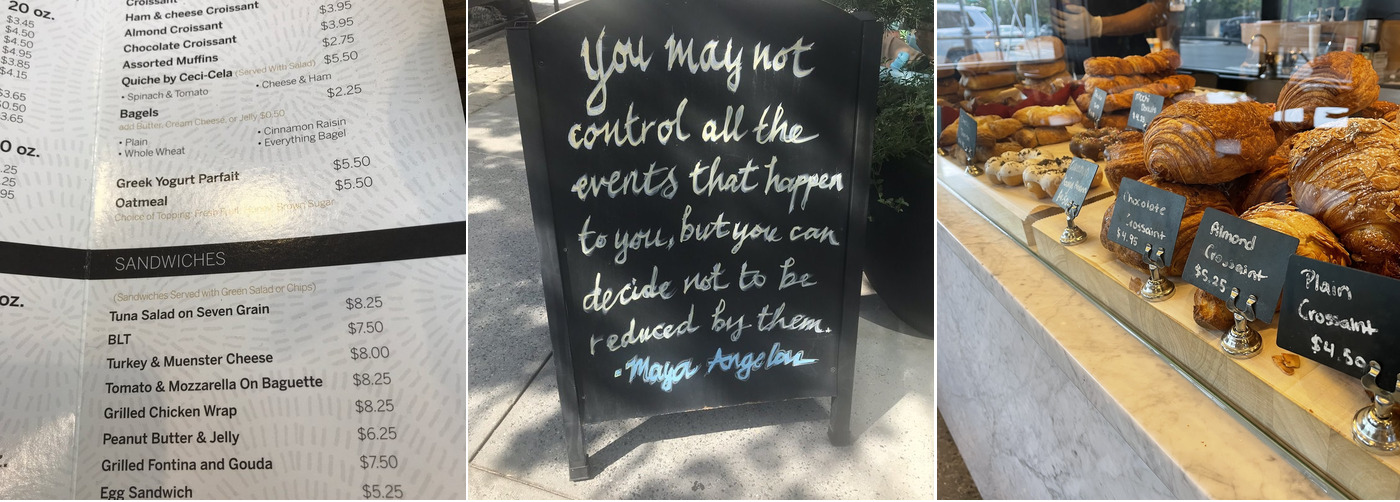 20 oz.
$3.45
$4.50
$4.50
$4.95
$3.85
$4.15
$3.65
$0.50
3.65
0 oz.
.25
.25
.95
oz.
Croissant
Ham & cheese Croissant $3.95
Almond Croissant $3.95
Chocolate Croissant $3.95
Assorted Muffins $2.75
Quiche by Ceci-Cela (Served With Salad) $5.50
• Spinach & Tomato • Cheese & Ham
Bagels $2.25
add Butter, Cream Cheese, or Jelly $0.50
• Plain • Cinnamon Raisin
• Whole Wheat • Everything Bagel
Greek Yogurt Parfait $5.50
Oatmeal $5.50
Choice of Topping: Fresh Fruit, Honey, Brown Sugar
SANDWICHES
(Sandwiches Served with Green Salad or Chips)
Tuna Salad on Seven Grain $8.25
BLT $7.50
Turkey & Muenster Cheese $8.00
Tomato & Mozzarella On Baguette $8.25
Grilled Chicken Wrap $8.25
Peanut Butter & Jelly $6.25
Grilled Fontina and Gouda $7.50
Egg Sandwich $5.25
You may not
control all the
events that happen
to you, but you can
decide not to be
reduced by them.
-Maya Angelou
Chocolate
Croissaint
$4.95
Almond
Croissaint
$5.25
Plain
Croissaint
$4.50